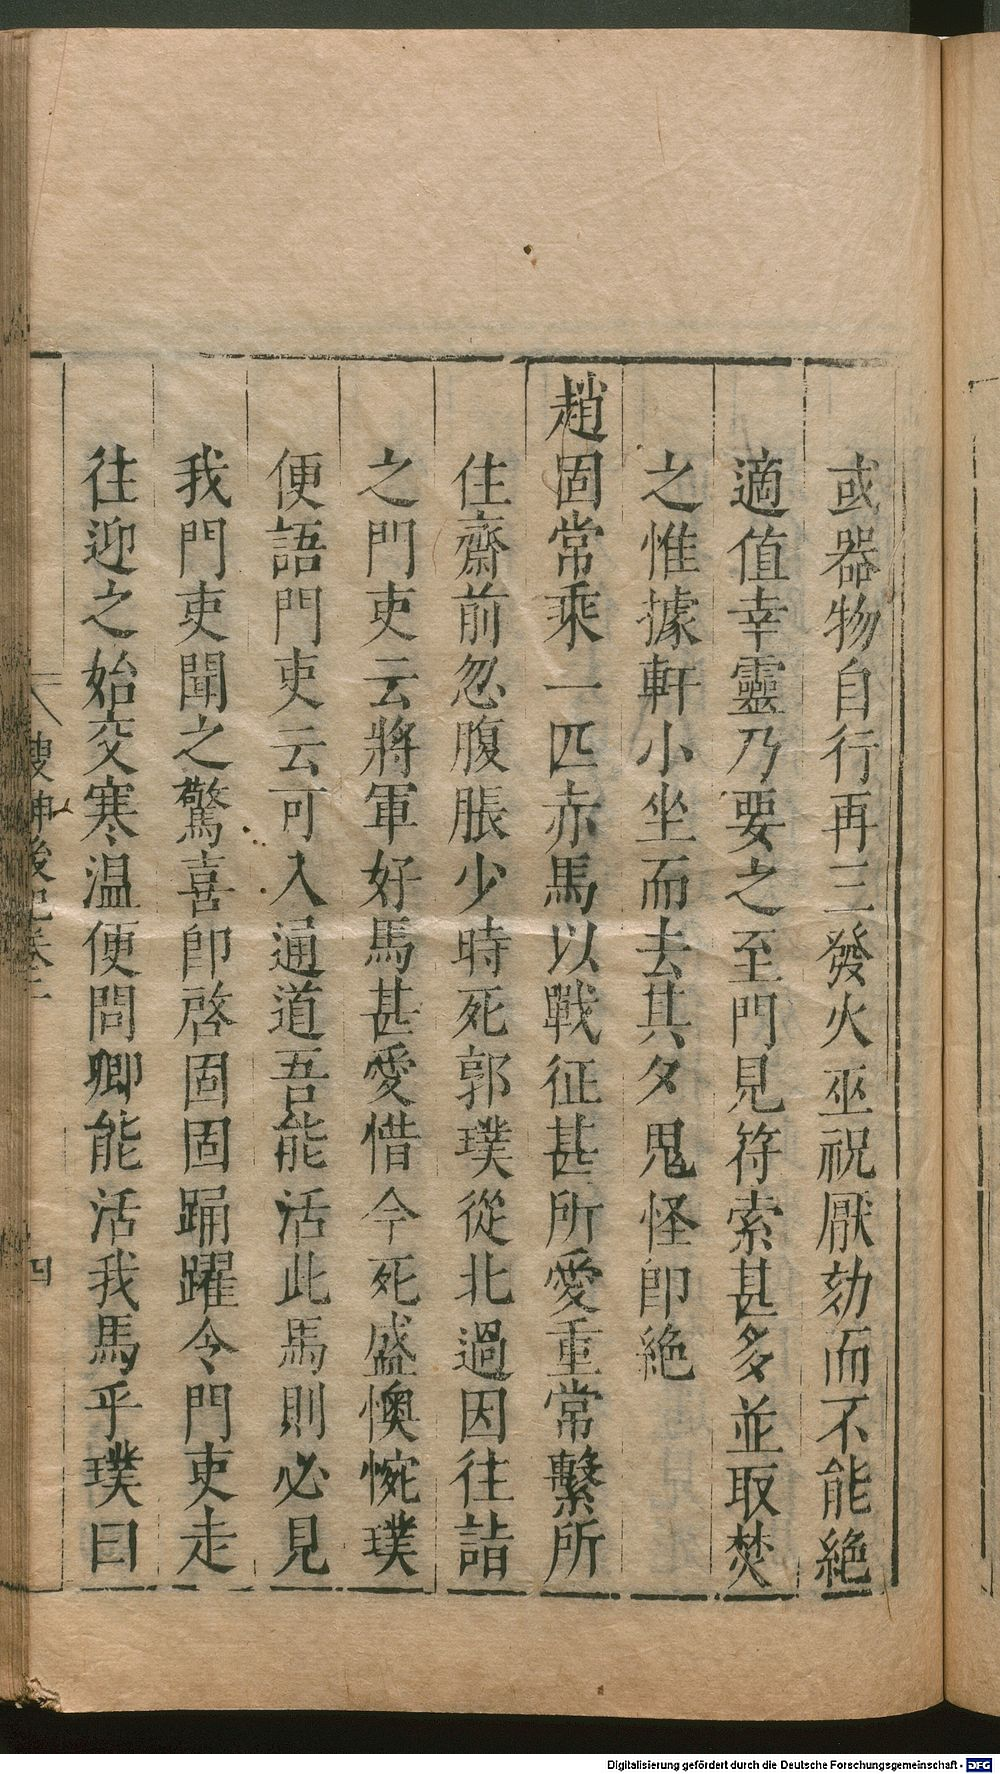 或器物自行再三發火巫祝厭劾而不能絶
適值幸靈乃要之至門見符索甚多並取焚
之惟據軒小坐而去其夕鬼怪卽絶
趙固常乘一匹赤馬以戰征甚所愛重常繫所
住齋前忽腹脹少時死郭璞從北過因往詣
之門吏云將軍好馬甚愛惜今死盛懊惋璞
便語門吏云可入通道吾能活此馬則必見
我門吏聞之驚喜卽啓固固踊躍令門吏走
往迎之始交寒温便問卿能活我馬乎璞曰
搜神後記卷二
四
Digitalisierung gefördert durch die Deutsche Forschungsgemeinschaft - DFG